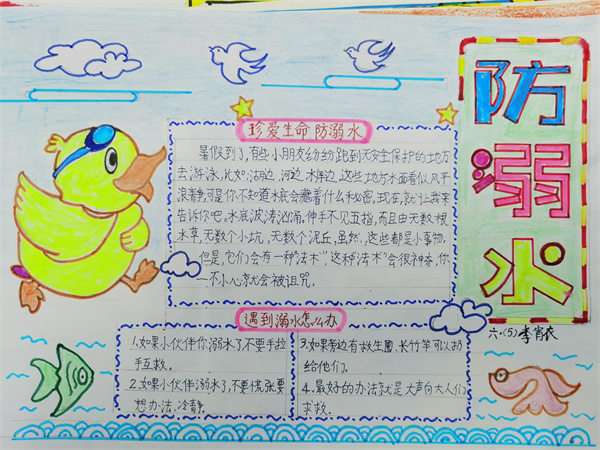 防溺水
珍爱生命 防溺水
暑假到了,有些小朋友纷纷跑到无安全保护的地方
去游泳,比如:湖边,河边,水库边,这些地方水面看似风平
浪静,可是你不知道水底会藏着什么和秘密。现在,就让我来
告诉你吧。水底波涛汹涌,伸手不见五指,而且由无数根
水草,无数个小坑,无数个泥丘,虽然,这些都是小事物,
但是,它们会有一种“法术”,这种“法术”会很神奇,你
一不小心就会被诅咒。
遇到溺水怎么办
1.如果小伙伴你溺水了,不要手拉
手互救。
2.如果小伙伴溺水了,不要慌张要
想办法,冷静。
3.如果旁边有救生圈,长竹竿可以扔
给他们。
4.最好的办法就是大声向大人们
求救。
六.(5)